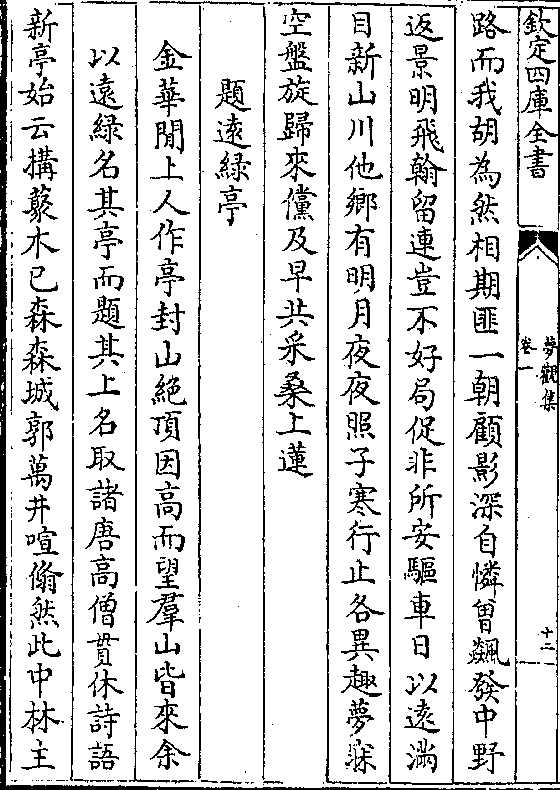 欽定四庫全書
夢觀集
卷一
十二
路而我胡為然相期匪一朝顧影深自憐曾飆發中野
返景明飛翰留連豈不好局促非所安驅車日以遠滿
目新山川他鄉有明月夜夜照子寒行止各異趣夢寐
空盤旋歸來儻及早共采桑上蓮
題遠綠亭
金華閒上人作亭封山絶頂因高而望羣山皆來余
以遠緑名其亭而題其上名取諸唐高僧貫休詩語
新亭始云搆蓺木已森森城郭萬井喧翛然此中林主